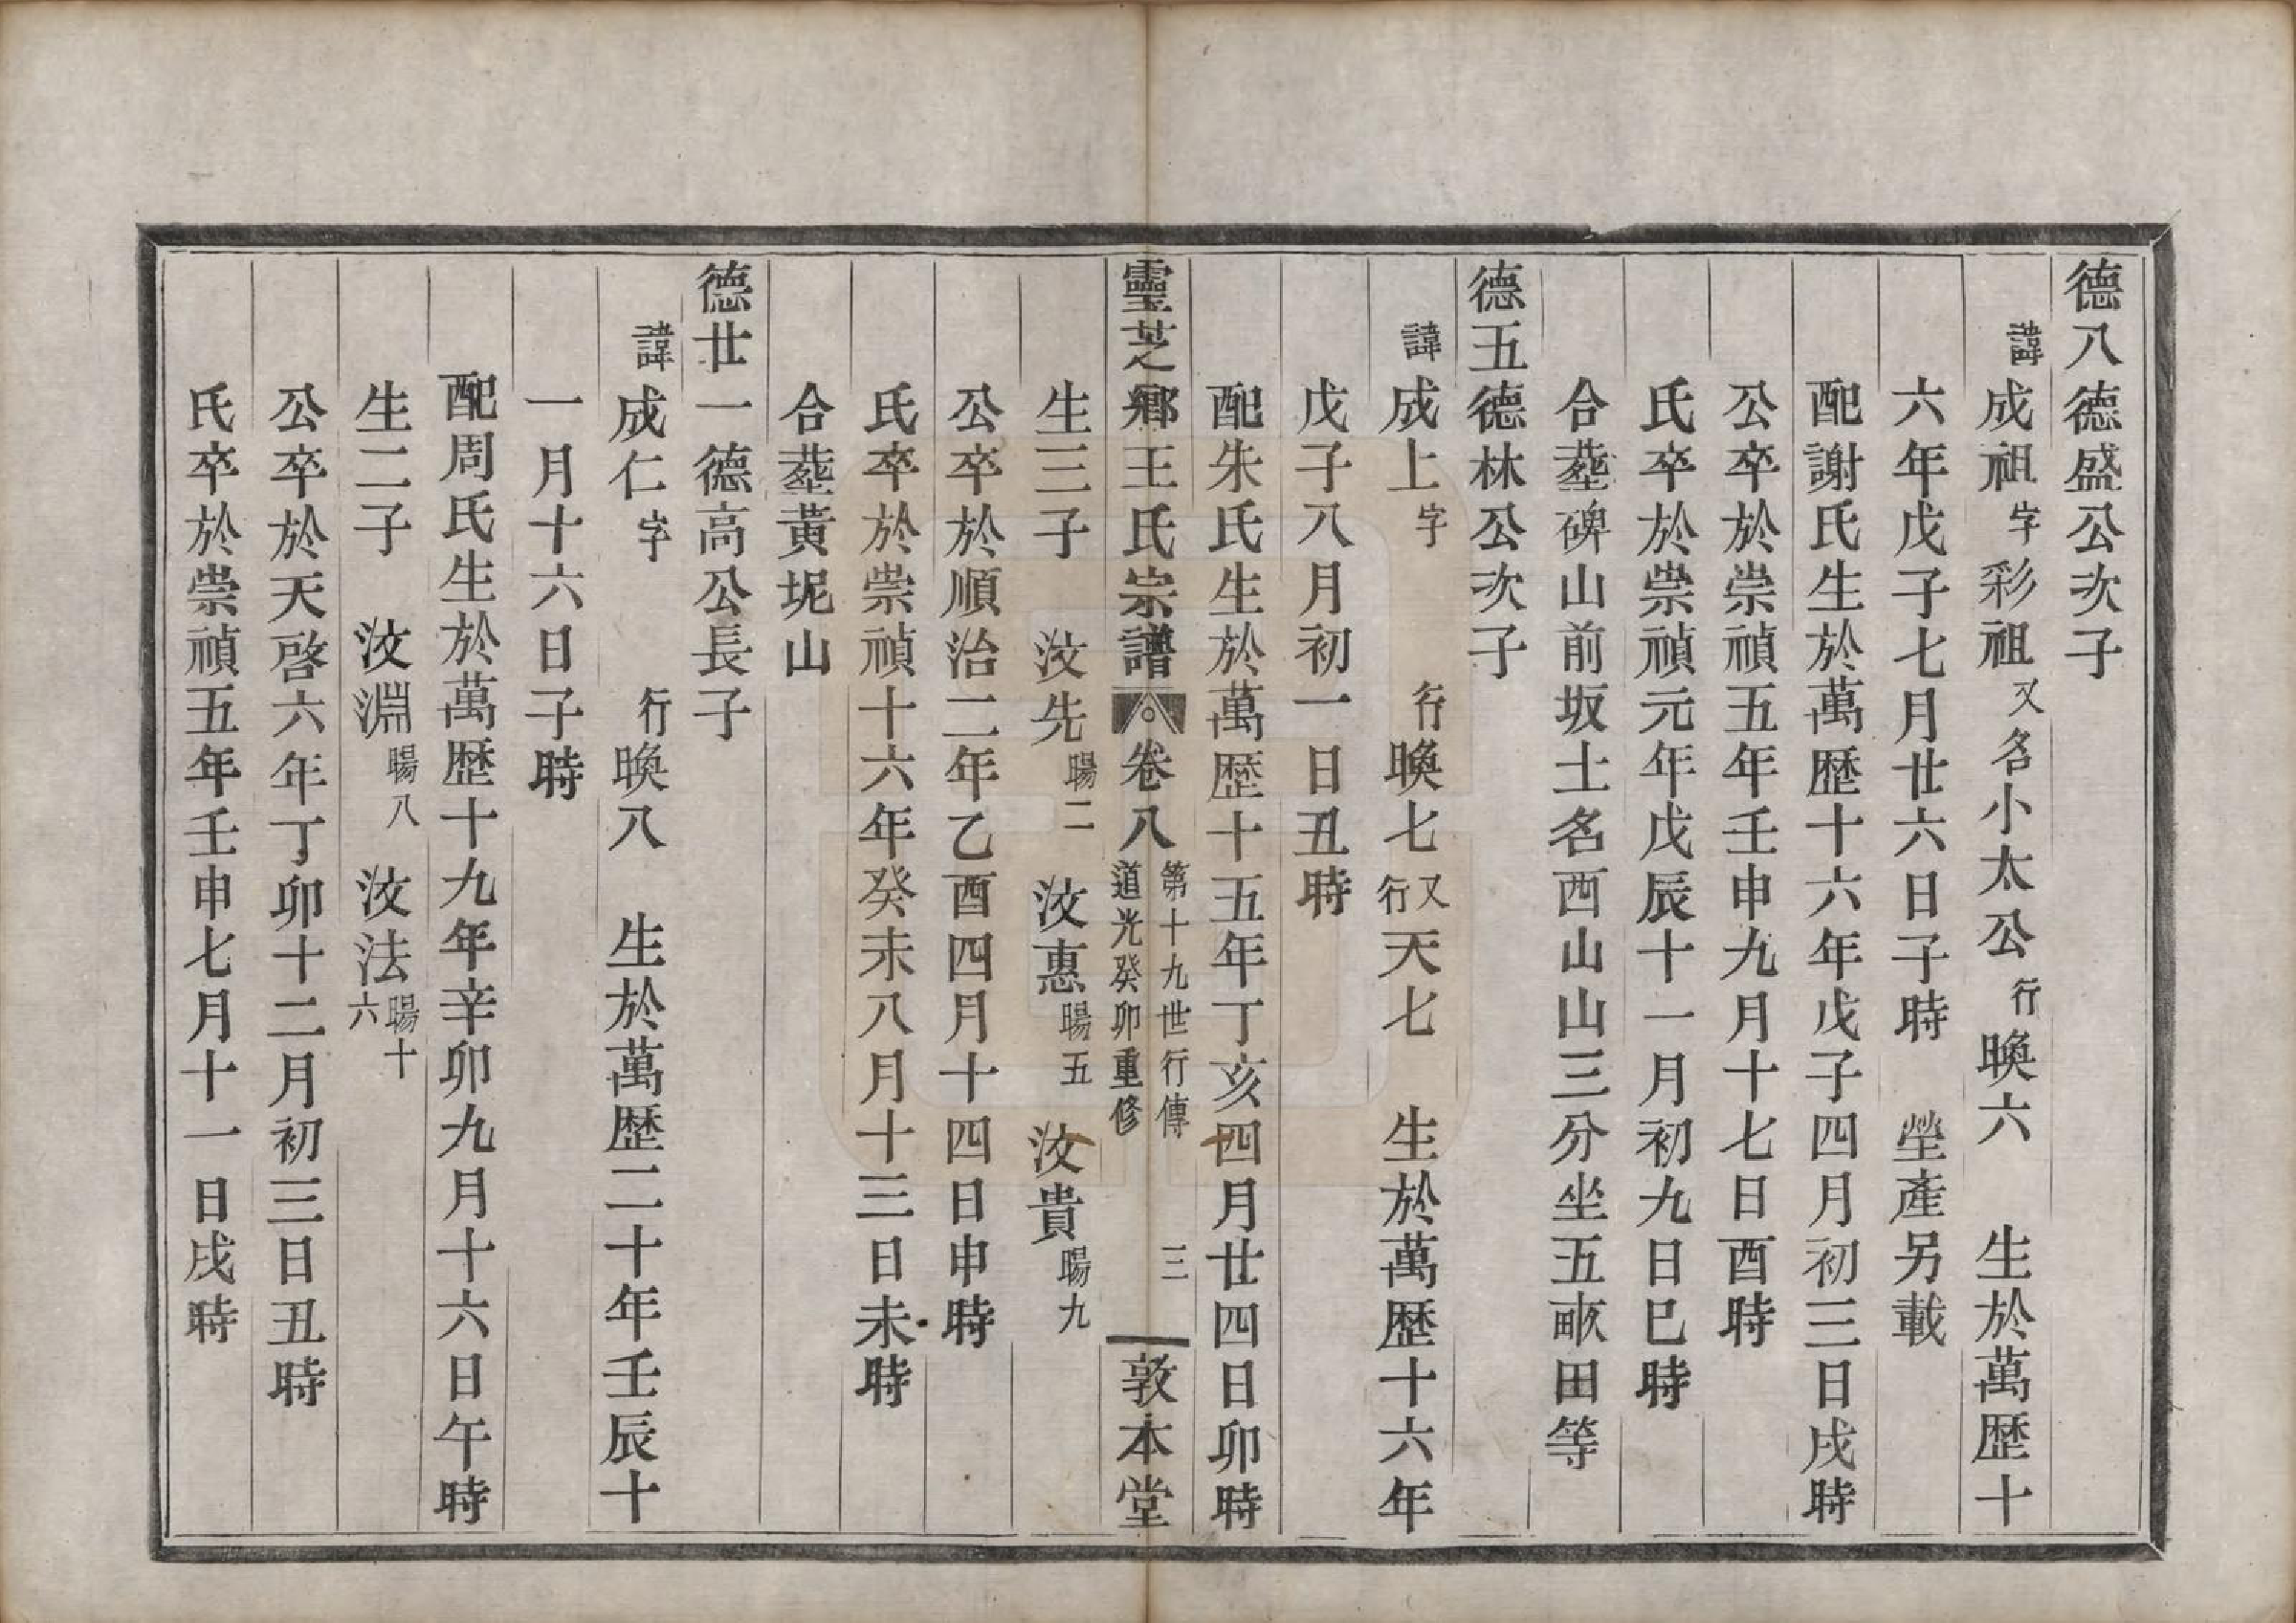 德八德盛公次子
諱成祖字彩祖又名小太公行暎六　生於萬歴十
六年戊子七月廿六日子時　塋產另載
配謝氏生於萬歴十六年戊子四月初三日戌時
公卒於崇禎五年壬申九月十七日酉時
氏卒於崇禎元年戊辰十一月初九日巳時
合塟碑山前坂土名西山山三分坐五畝田等
德五德林公次子
諱成上字　行暎七又行天七　生於萬歴十六年
戊子八月初一日丑時
配朱氏生於萬歴十五年丁亥四月廿四日卯時
靈芝鄉王氏宗譜　卷八　第十九世行傳　道光癸卯重修　三　敦本堂
生三子　汶先暘二　汶惠暘五　汶貴暘九
公卒於順治二年乙酉四月十四日申時
氏卒於崇禎十六年癸未八月十三日未時
合塟黃坭山
德廿一德高公長子
諱成仁字　行暎八　生於萬歴二十年壬辰十
一月十六日子時
配周氏生於萬歴十九年辛卯九月十六日午時
生二子　汶淵暘八　汶法暘十六
公卒於天啓六年丁卯十二月初三日丑時
氏卒於崇禎五年壬申七月十一日戌時